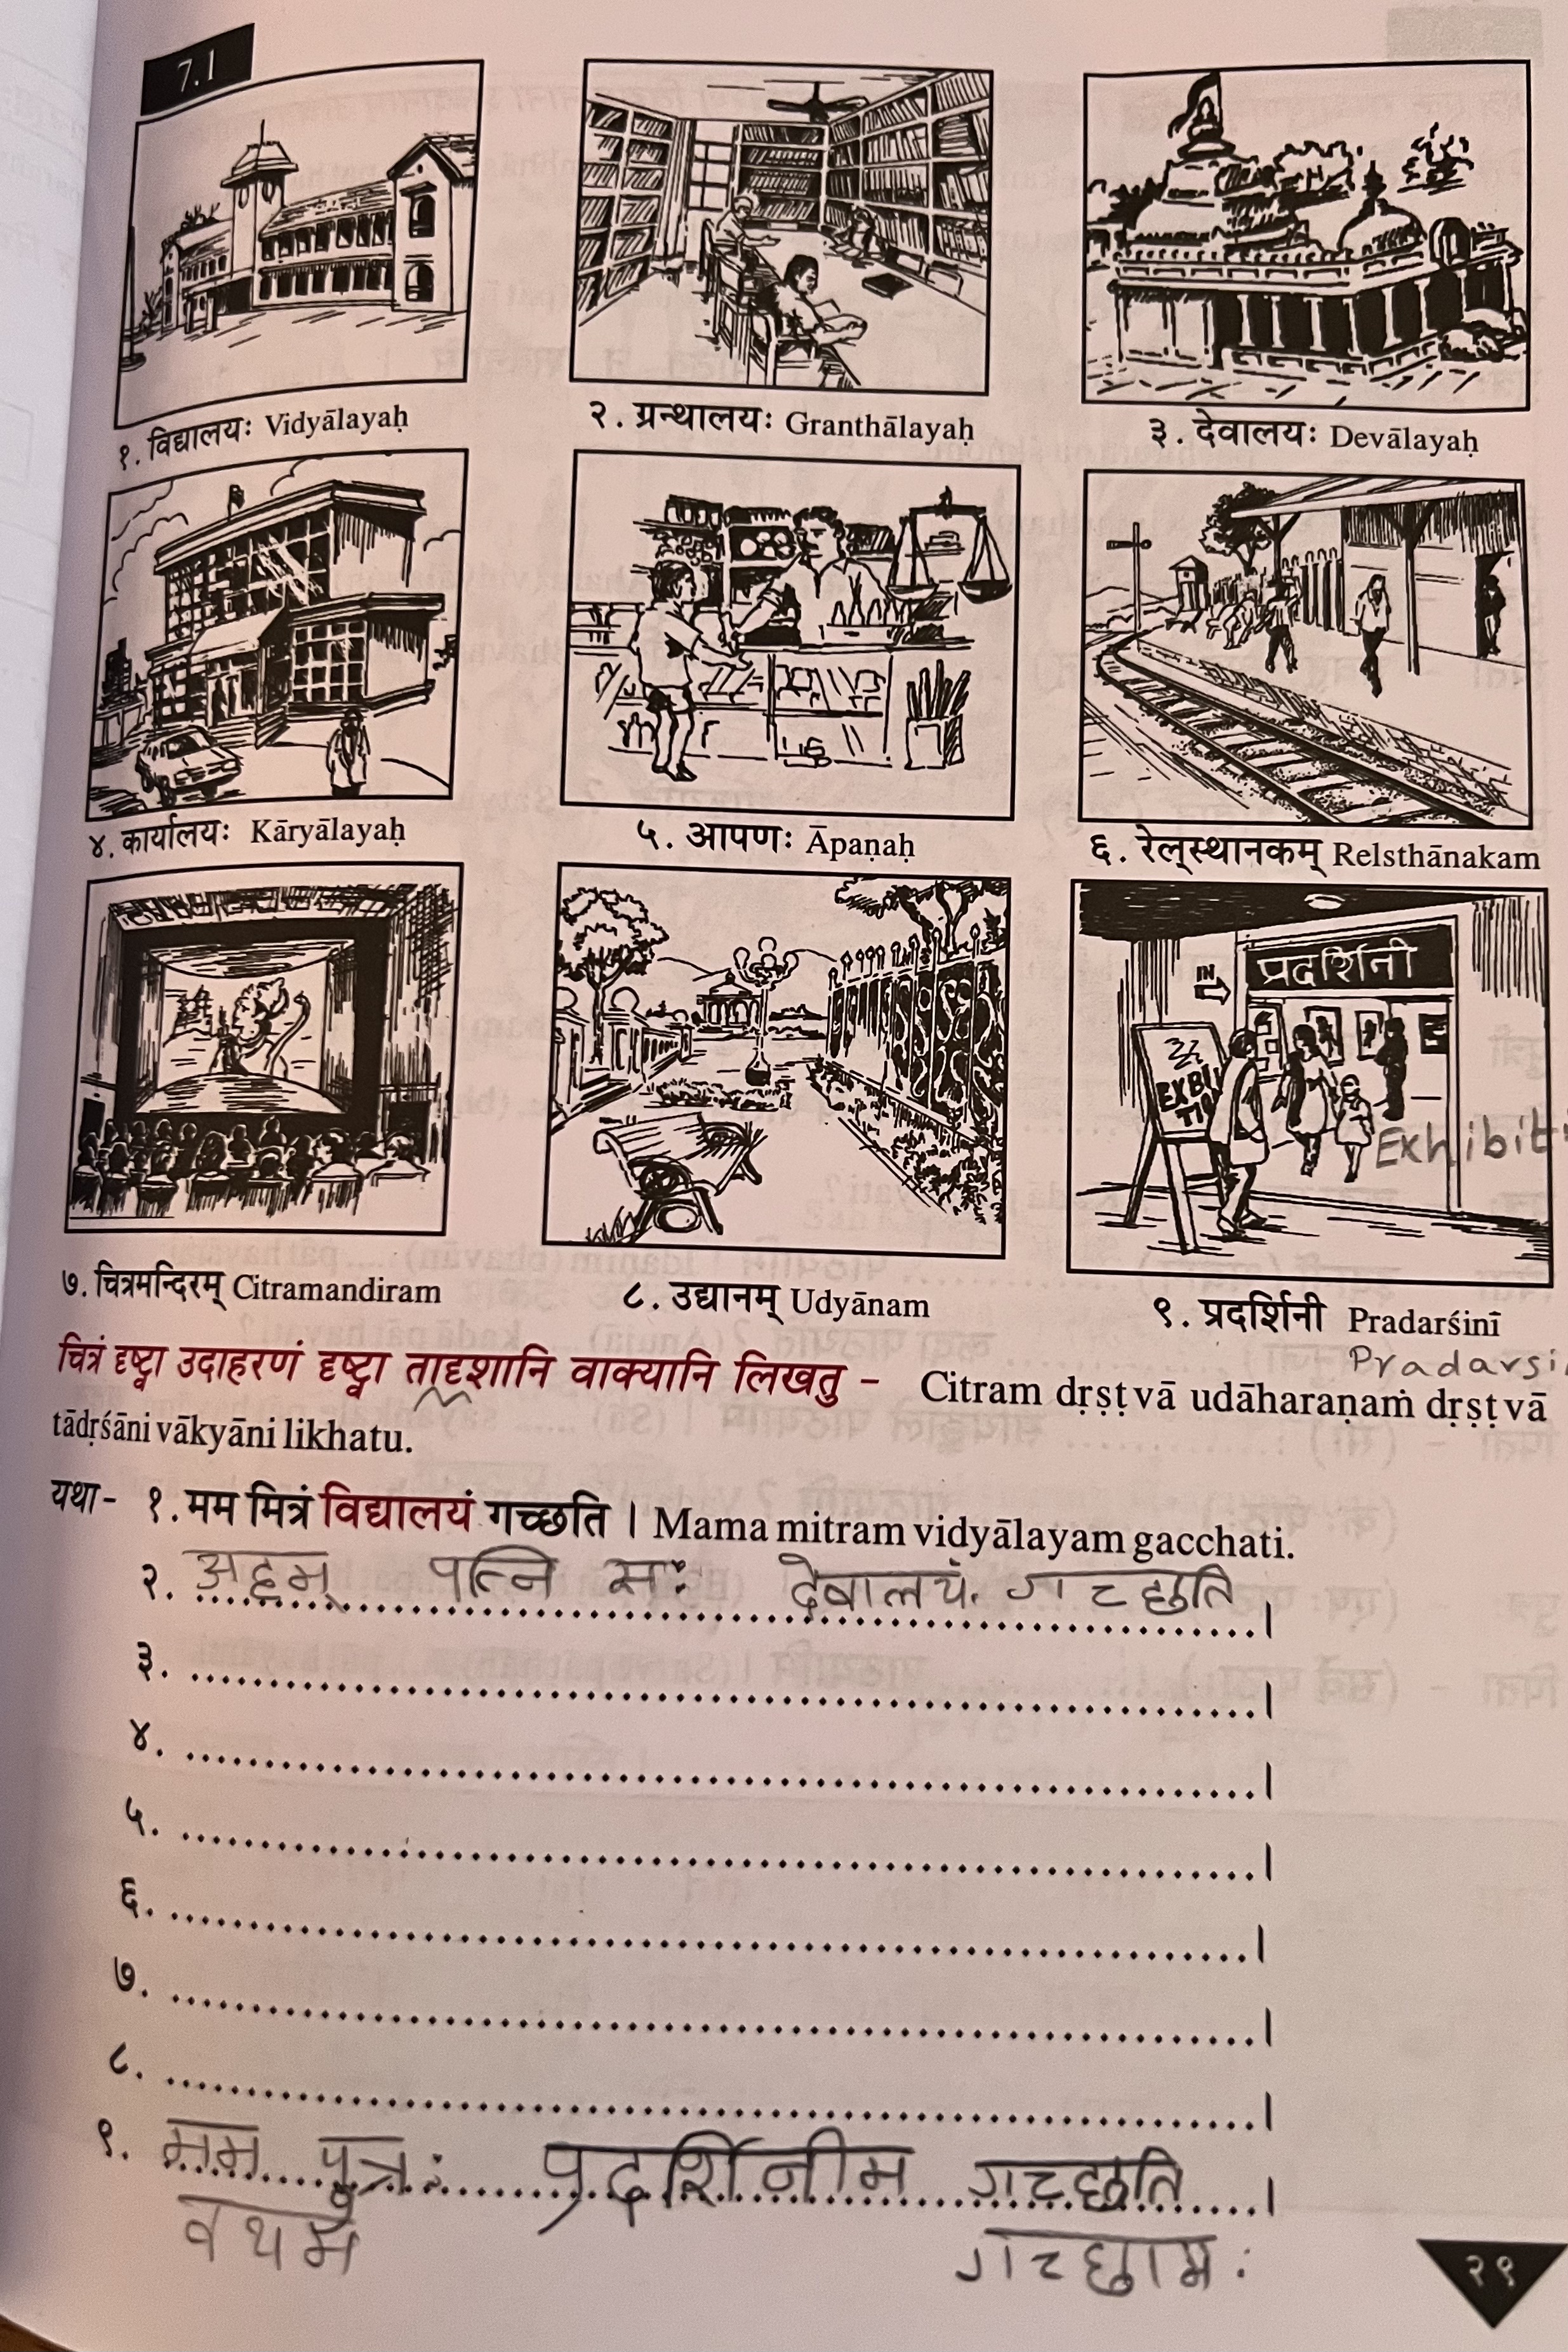 7.1
१. विद्यालयः Vidyālayaḥ
२. ग्रन्थालयः Granthālayaḥ
३. देवालयः Devālayaḥ
४. कार्यालयः Kāryālayaḥ
५. आपणः Āpaṇaḥ
६. रेल्स्थानकम् Relsthānakam
IN
प्रदर्शिनी
Exhibit
७. चित्रमन्दिरम् Citramandiram
८. उद्यानम् Udyānam
९. प्रदर्शिनी Pradarśinī
Pradarsi
चित्रं दृष्ट्वा उदाहरणं दृष्ट्वा तादृशानि वाक्यानि लिखतु – Citram dṛṣṭvā udāharaṇaṁ dṛṣṭvā
tādṛśāni vākyāni likhatu.
यथा- १. मम मित्रं विद्यालयं गच्छति । Mama mitram vidyālayam gacchati.
२. अहम् पत्नि सः देवालयं गच्छति ।
३. ।
४. ।
५. ।
६. ।
७. ।
८. ।
९. मम पुत्रः प्रदर्शिनीम गच्छति ।
वयम् गच्छामः
२९